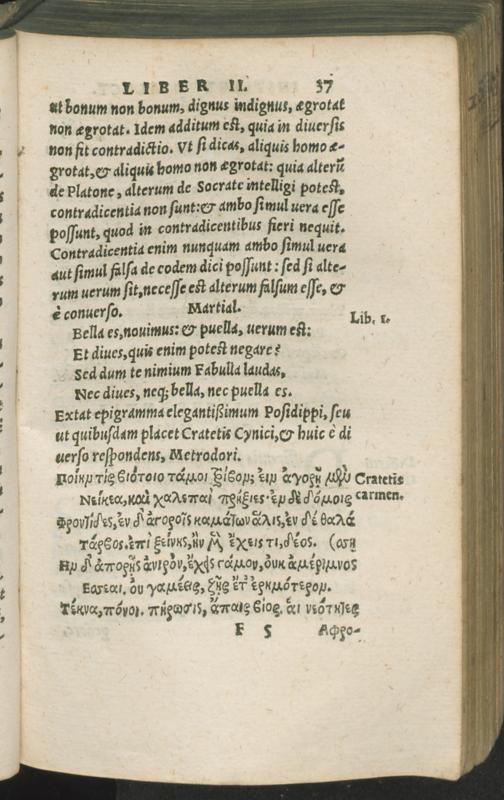 LIBER II. 37
ut bonum non bonum, dignus indignus, ægrotat
non ægrotat. Idem additum est, quia in diversis
non fit contradictio. Vt si dicas, aliquis homo æ-
grotat, & aliquis homo non ægrotat: quia alterũ
de Platone, alterum de Socrate intelligi potest,
contradicentia non sunt: & ambo simul uera esse
possunt, quod in contradicentibus fieri nequit.
Contradicentia enim nunquam ambo simul uera
aut simul falsa de eodem dici possunt: sed si alte-
rum uerum sit, necesse est alterum falsum esse, &
è conuerso. Martial.
Lib. 1.
Bella es, nouimus: & puella, uerum est:
Et diues, quis enim potest negare?
Sed dum te nimium Fabulla laudas,
Nec diues, neq; bella, nec puella es.
Extat epigramma elegantißimum Posidippi, seu
ut quibusdam placet Cratetis Cynici, & huic è di
uerso respondens, Metrodori.
Ποίην τίς βιότοιο τάμοι τρίβον; ἐιν ἀγορῇ μὲν
Cratetis
carmen.
Νείκεα, καὶ χαλεπαὶ πρήξιες· ἐν δὲ δόμοις
Φροντίδες, ἐν δ' ἀγροῖς καμάτων ἅλις, ἐν δὲ θαλά
Τάρβος. ἐπὶ ξείνης, ἢν μὲν ἔχεις τι, δέος. (σσῃ
Ην δ' ἀπορῇς ἀνιρόν, ἔχεις γάμον, οὐκ ἀμέριμνος
Εσσεαι. οὐ γαμέεις, ζῇς ἔτ' ἐρημότερον.
Τέκνα, πόνοι. πήρωσις, ἄπαις βίος. ἁι νεότητες
F 5 Αφρο-